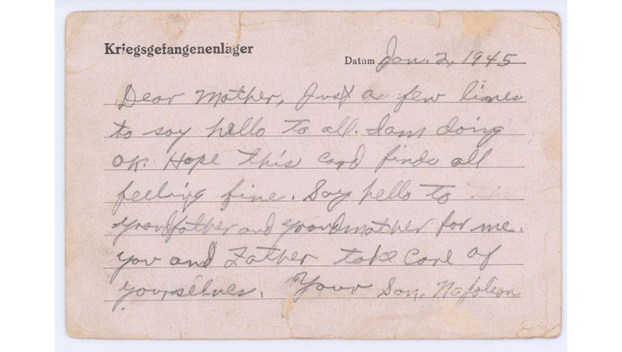 Kriegsgefangenenlager
Datom Jan. 2, 1945
Dear Mother, Just a few lines
to say hello to all. I am doing
OK. Hope this card finds all
feeling fine. Say hello to
grandfather and grandmother for me.
You and Father take care of
yourselves. Your Son, Napoleon